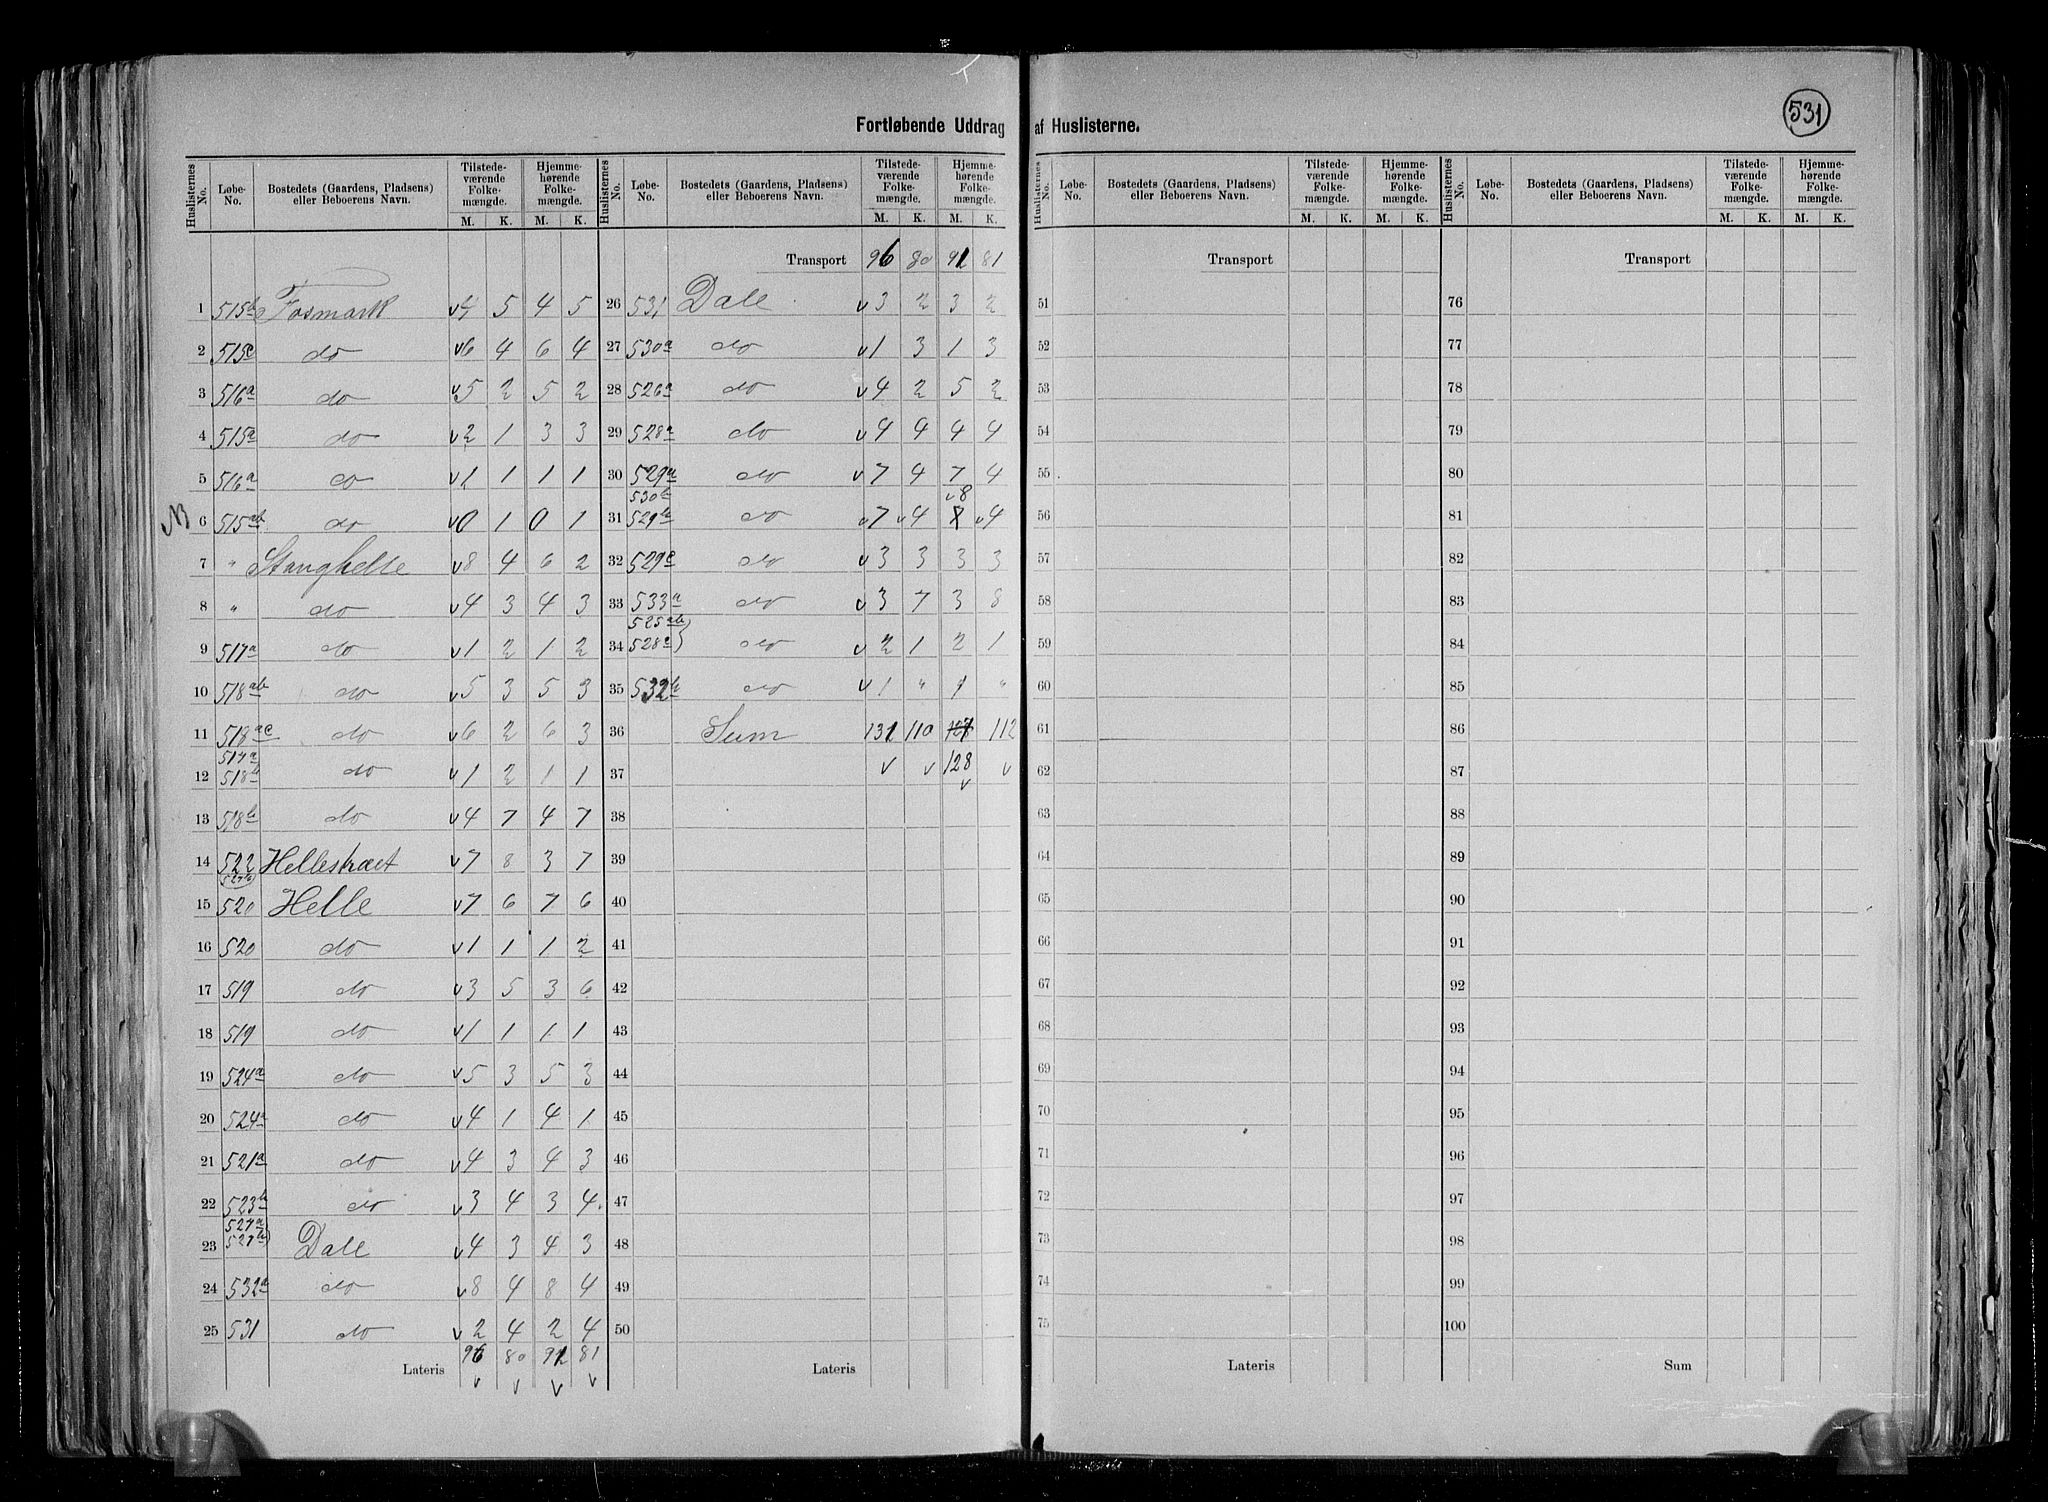 531
Fortløbende Uddrag af Huslisterne.
Huslisternes No. Løbe-No. Bostedets (Gaardens, Pladsens) eller Beboerens Navn. Tilstedeværende Folkemængde. M. K. Hjemmehørende Folkemængde. M. K.
1 515b Fosmark v4 5 4 5
2 515c do v6 4 6 4
3 516a do v5 2 5 2
4 515a do v2 1 3 3
5 516a do v1 1 1 1
NB 6 515ab do v0 1 0 1
7 " Stanghelle v8 4 6 2
8 " do v4 3 4 3
9 517a do v1 2 1 2
10 518ab do v5 3 5 3
11 518ac do v6 2 6 3
12 517a 518b do v1 2 1 1
13 518b do v4 7 4 7
14 522 Hellestræet v7 8 3 7
15 520 Helle v7 6 7 6
16 520 do v1 1 1 2
17 519 do v3 5 3 6
18 519 do v1 1 1 1
19 524a do v5 3 5 3
20 524a do v4 1 4 1
21 521a do v4 3 4 3
22 523b do v3 4 3 4
23 527a 527b Dale v4 3 4 3
24 532a do v8 4 8 4
25 531 do v2 4 2 4
Lateris 96 80 92 81
v v v v
Huslisternes No. Løbe-No. Bostedets (Gaardens, Pladsens) eller Beboerens Navn. Tilstedeværende Folkemængde. M. K. Hjemmehørende Folkemængde. M. K.
Transport 96 80 92 81
26 531 Dale v3 2 3 2
27 530a do v1 3 1 3
28 526a do v4 2 5 2
29 528a do v4 4 4 4
30 529a do v7 4 7 4
31 530b 529b do v7 v4 v8 v4
32 529c do v3 3 3 3
33 533a do v3 7 3 8
34 525ab 528a do v2 1 2 1
35 532b do v1 " 1 "
36 Sum 131 110 127 112
37 v v 128 v
v
38
39
40
41
42
43
44
45
46
47
48
49
50
Lateris
Huslisternes No. Løbe-No. Bostedets (Gaardens, Pladsens) eller Beboerens Navn. Tilstedeværende Folkemængde. M. K. Hjemmehørende Folkemængde. M. K.
Transport
51
52
53
54
55
56
57
58
59
60
61
62
63
64
65
66
67
68
69
70
71
72
73
74
75
Lateris
Huslisternes No. Løbe-No. Bostedets (Gaardens, Pladsens) eller Beboerens Navn. Tilstedeværende Folkemængde. M. K. Hjemmehørende Folkemængde. M. K.
Transport
76
77
78
79
80
81
82
83
84
85
86
87
88
89
90
91
92
93
94
95
96
97
98
99
100
Sum